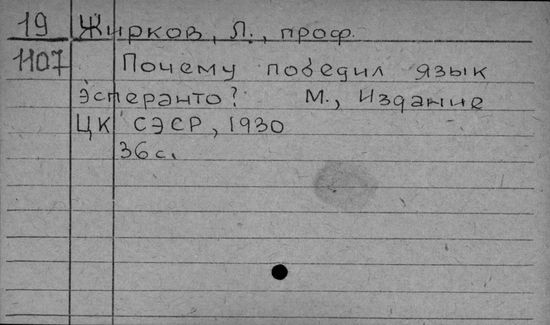 19 Жирков, Л., проф.
1107 Почему победил язык
эсперанто? М., Издание
ЦК СЭСР, 1930
36 с.